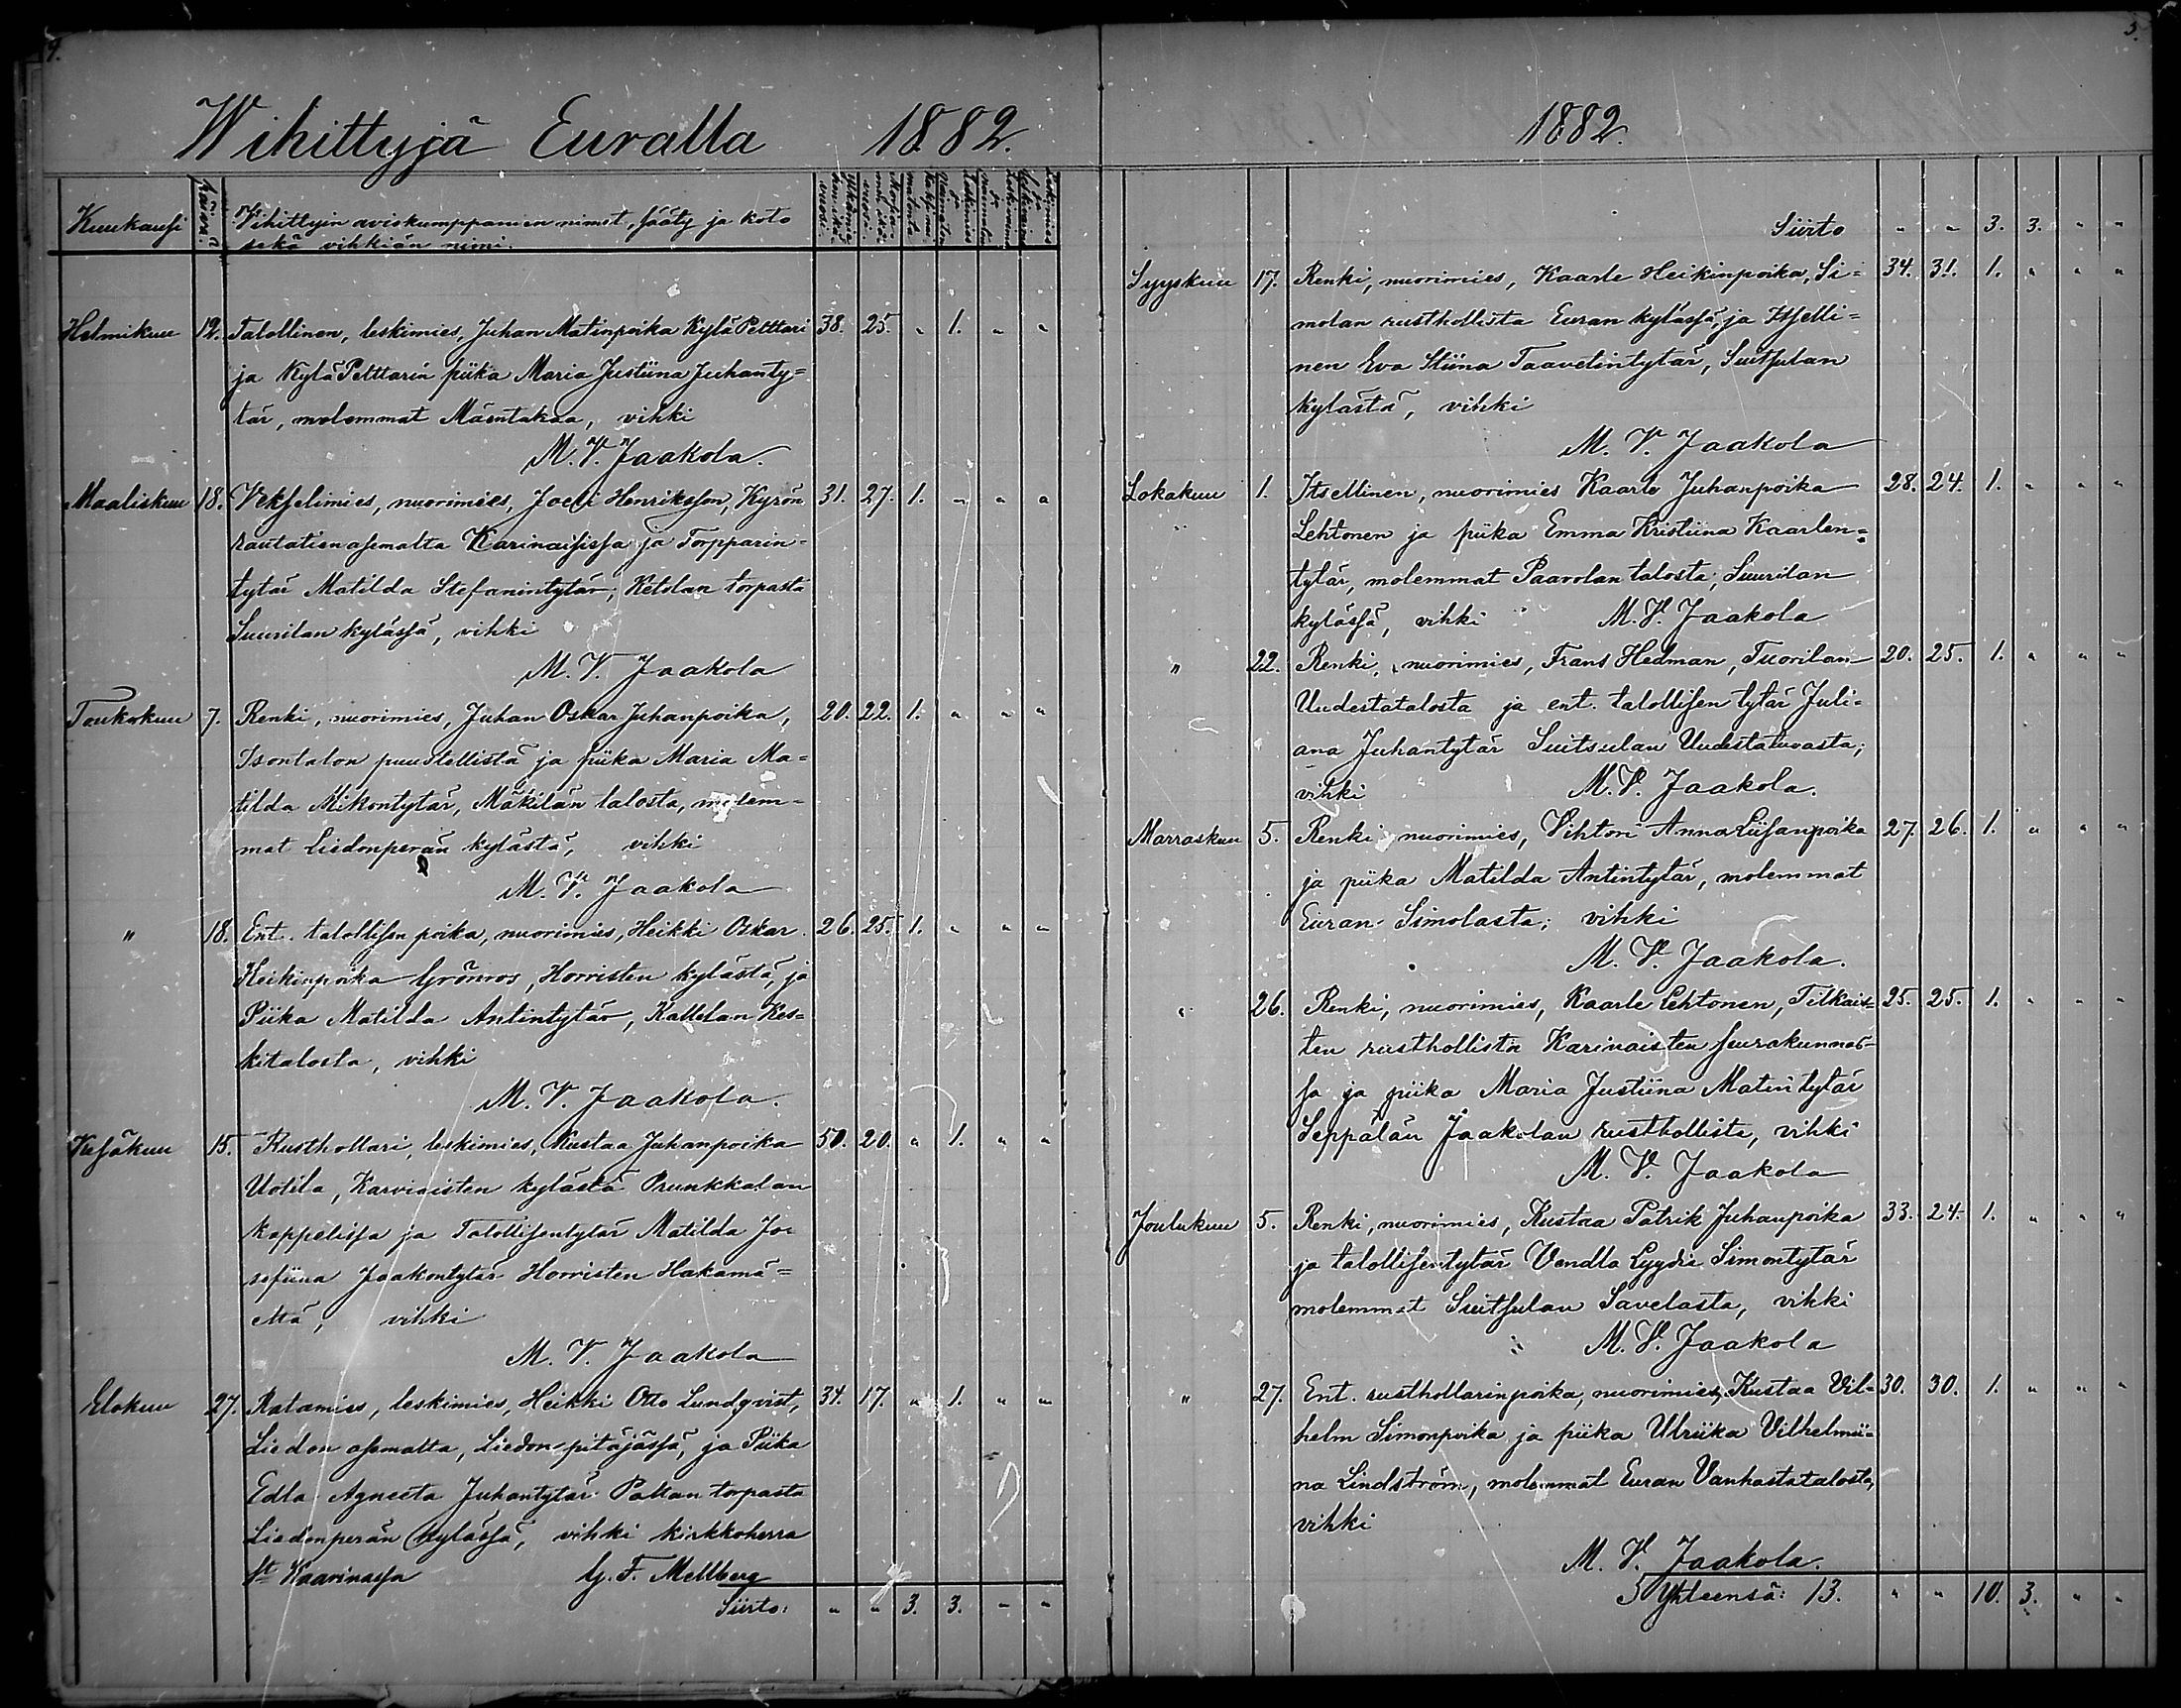 Wihittyjä Euralla 1882.
Kuukausi
Vihittyin aviokumppanien nimet, sääty ja koto
sekä vihkiän nimi.
Helmikuu 12. Talollinen, leskimies, Juhan Matinpoika KyläPelttari 38. 25. " 1. " "
ja KyläPelttarin piika Maria Justiina Juhanty=
tär, molemmat Mäentakaa, vihki
M. V. Jaakola.
Maaliskuu 18. Vekselimies, nuorimies, Joeli Henriksson, Kyrön 31. 27. 1. " " "
rautatienasemalta Karinaisissa ja Torpparin-
tytär Matilda Stefanintytär; Ketolan torpasta
Suurilan kylässä, vihki
M. V. Jaakola
Toukokuu 7. Renki, nuorimies, Juhan Oskar Juhanpoika, 20. 22. 1. " " "
Isontalon puustellista ja piika Maria Ma=
tilda Mikontytär, Mäkilän talosta, molem=
mat Liedonperän kylästä, vihki
M. V. Jaakola
" 18. Ent. talollisen poika, nuorimies, Heikki Oskar 26. 25. 1. " " "
Heikinpoika Grönroos, Horristen kylästä, ja
Piika Matilda Antintytär, Kallelan Kes=
kitalosta, vihki
M. V. Jaakola.
Kesäkuu 15. Rusthollari, leskimies, Kustaa Juhanpoika 50. 20. " 1. " "
Uotila, Karviaisten kylästä Prunkkalan
kappelissa ja Talollisentytär Matilda Jo=
sefiina Jaakontytär Horristen Hakamä=
eltä, vihki
M. V. Jaakola
Elokuu 27. Ratamies, leskimies, Heikki Otto Lundqvist, 34. 17. " 1. " "
Liedon asemalta, Liedon pitäjässä, ja Piika
Edla Agneeta Juhantytär Paltan torpasta
Liedonperän kylässä, vihki kirkkoherra
St Kaarinassa G. F. Mellberg
Siirto: " " 3. 3. " "
3.
1882.
Siirto " " 3. 3. " "
Syyskuu 17. Renki, nuorimies, Kaarle Heikinpoika, Si= 34. 31. 1. " " "
molan rusthollista Euran kylässä, ja Itselli=
nen Eva Stiina Taavetintytär, Suitsulan
kylästä, vihki
M. V. Jaakola
Lokakuu 1. Itsellinen, nuorimies Kaarle Juhanpoika 28. 24. 1. " " "
Lehtonen ja piika Emma Kristiina Kaarlen=
tytär, molemmat Paavolan talosta; Suurilan
kylässä, vihki M. V. Jaakola
" 22. Renki, nuorimies, Frans Hedman, Tuorilan 20. 25. 1. " " "
Uudestatalosta ja ent. talollisen tytär Juli=
ana Juhantytär Suitsulan Uudestatuvasta;
vihki M. V. Jaakola.
Marraskuu 5. Renki nuorimies, Vihtori AnnaLiisanpoika 27. 26. 1. " " "
ja piika Matilda Antintytär, molemmat
Euran Simolasta; vihki
M. V. Jaakola.
" 26. Renki, nuorimies, Kaarle Lehtonen, Tilkais= 25. 25. 1. " " "
ten rusthollista Karinaisten seurakunnas=
sa ja piika Maria Justiina Matintytär
Seppälän Jaakolan rusthollista, vihki
M. V. Jaakola
Joulukuu 5. Renki, nuorimies, Kustaa Patrik Juhanpoika 33. 24. 1. " " "
ja talollisentytär Vendla Lyydia Simontytär
molemmat Suitsulan Savelasta, vihki
M. V. Jaakola
" 27. Ent. rusthollarinpoika, nuorimies, Kustaa Vil= 30. 30. 1. " " "
helm Simonpoika ja piika Ulriika Vilhelmii=
na Lindström, molemmat Euran Vanhastatalosta,
vihki
M. V. Jaakola.
Yhteensä: 13. " " 10. 3. " "